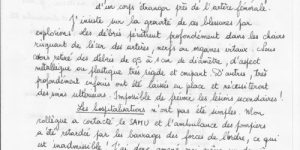 d'un corps étranger près de l'artère fémorale.
J'insiste sur la gravité de ces blessures par
explosions : les débris pénètrent profondément dans les chairs
risquant de léser des artères, nerfs ou organes vitaux : nous
avons retiré des débris de 0,5 à 1 cm de diamètre, d'aspect
métallique ou plastique très rigide et coupant. D'autres, très
profondément enfouis ont été laissés en place et nécessiteront
des soins ultérieurs. Impossible de prévoir les lésions secondaires !
Les hospitalisations n'ont pas été simples. Mon
collègue a contacté le SAMU et l'ambulance des pompiers
a été retardée par les barrages des forces de l'ordre, ce qui
est inadmissible !